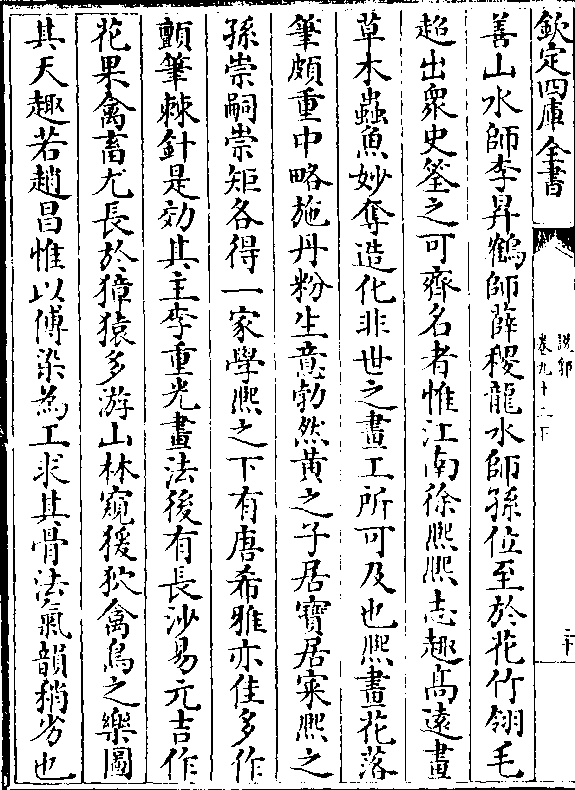 欽定四庫全書
說郛
卷九十二下
二十
善山水師李昇鶴師薛稷龍水師孫位至於花竹翎毛
超出衆史筌之可齊名者惟江南徐熙熙志趣髙遠畫
草木蟲魚妙奪造化非世之畫工所可及也熙畫花落
筆頗重中略施丹粉生意勃然黄之子居寶居寀熙之
孫崇嗣崇矩各得一家學熙之下有唐希雅亦佳多作
顫筆棘針是効其主李重光畫法後有長沙易元吉作
花果禽畜尤長於獐猿多游山林窺猨狖禽鳥之樂圖
其天趣若趙昌惟以傅染為工求其骨法氣韻稍劣也